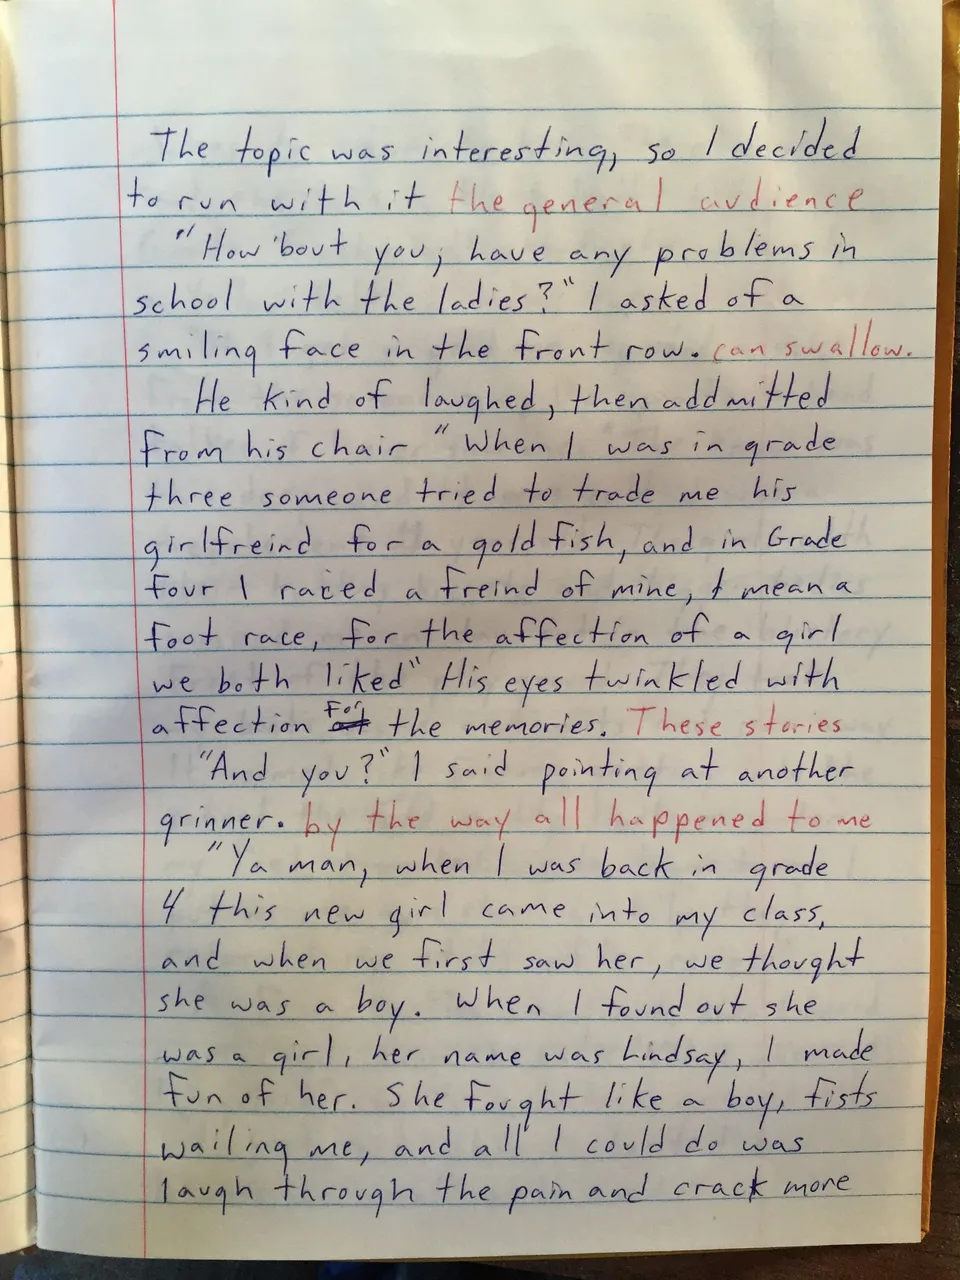 The topic was interesting, so I decided
to run with it the general audience
"How 'bout you; have any problems in
school with the ladies?" I asked of a
smiling face in the front row. can swallow.
He kind of laughed, then addmitted
from his chair "When I was in grade
three someone tried to trade me his
girlfreind for a gold fish, and in Grade
four I raced a freind of mine, I mean a
foot race, for the affection of a girl
we both liked" His eyes twinkled with
affection for the memories. These stories
"And you?" I said pointing at another
grinner. by the way all happened to me
"Ya man, when I was back in grade
4 this new girl came into my class,
and when we first saw her, we thought
she was a boy. When I found out she
was a girl, her name was Lindsay, I made
fun of her. She fought like a boy, fists
wailing me, and all I could do was
laugh through the pain and crack more